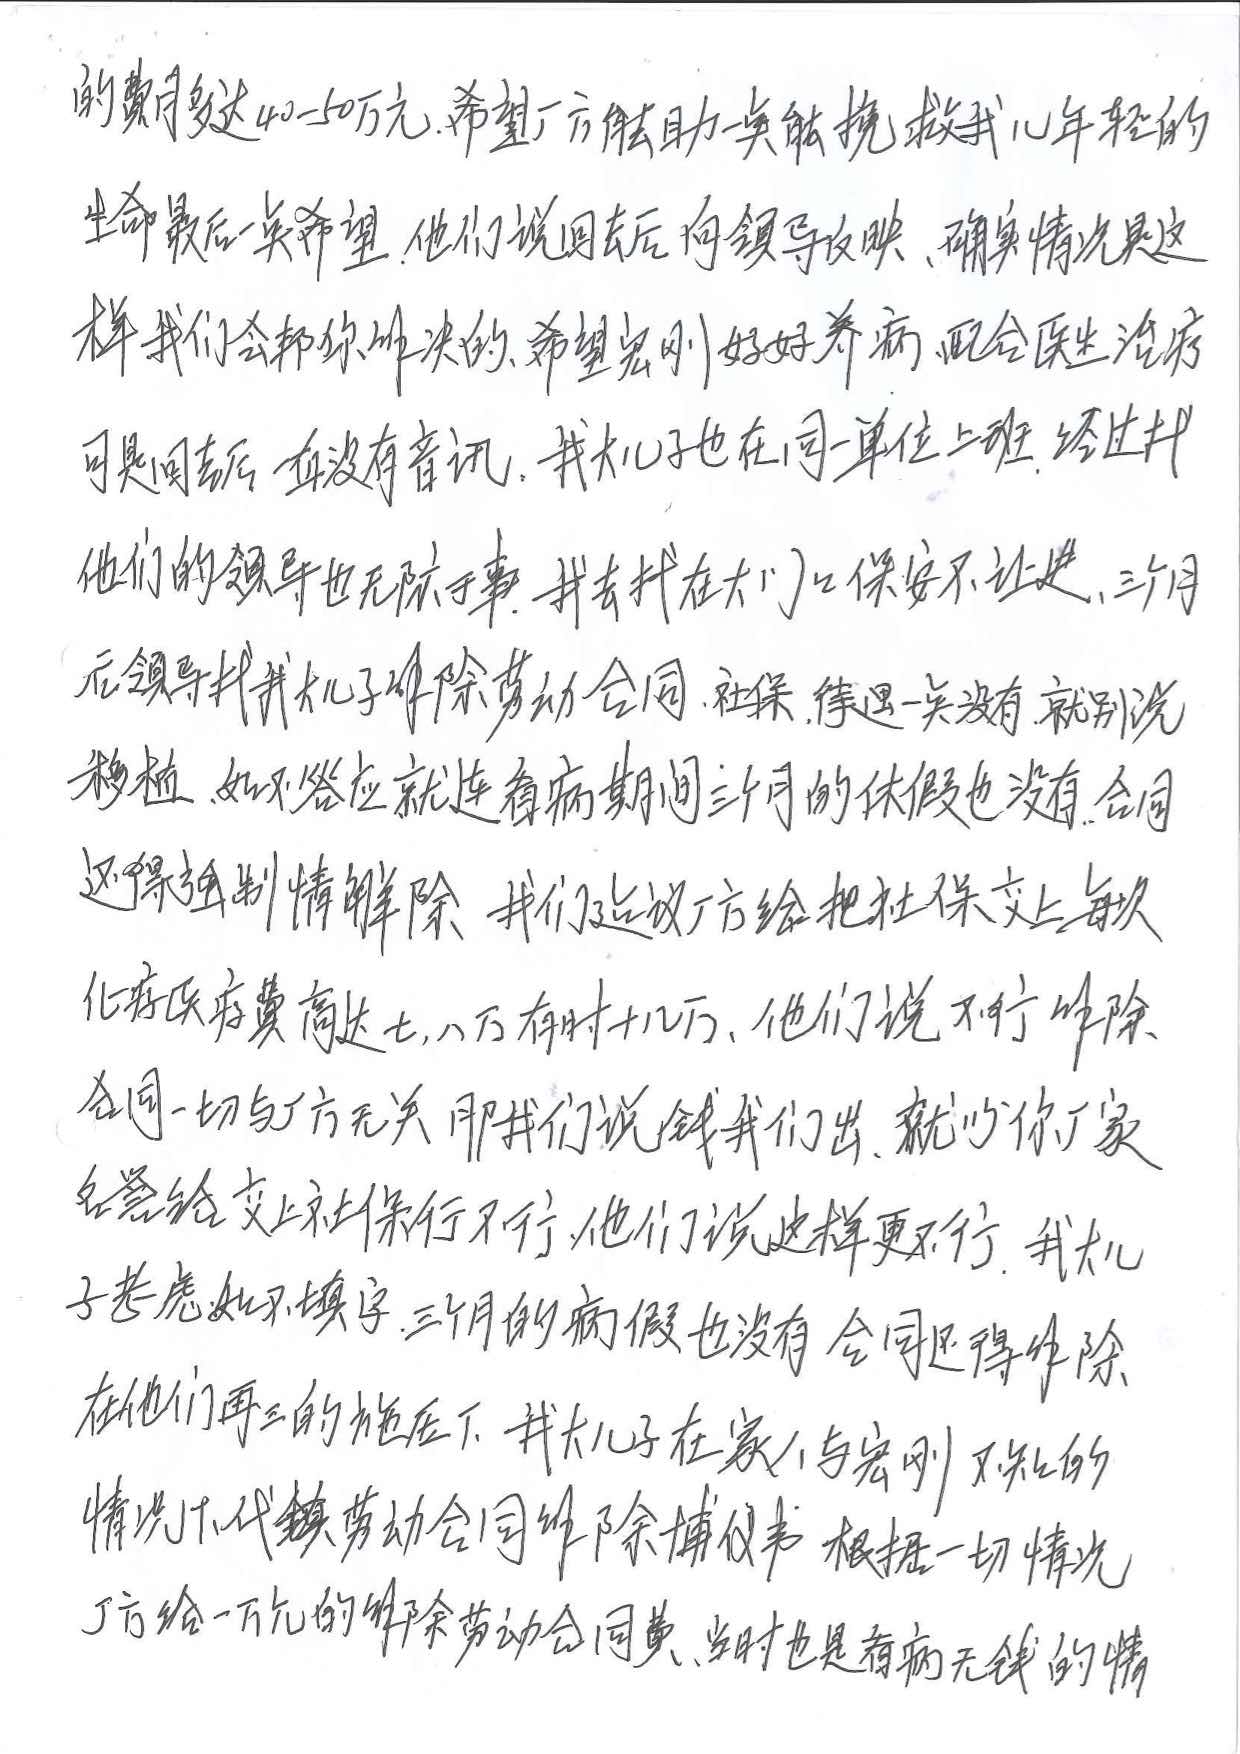 的费用多达40-50万元.希望厂方能去助一点能挽救我儿年轻的
生命最后一点希望.他们说回去后向领导反映、确实情况是这
样我们会帮你解决的、希望宏刚好好养病、配合医生治疗
可是回去后一直没有音讯.我大儿子也在同一单位上班.经过找
他们的领导也无济于事.我去找在大门口保安不让进、三个月
后领导找我大儿子解除劳动合同.社保.待遇一点没有.就别说
移植、如不答应就连看病期间三个月的休假也没有.合同
还得强制情解除、我们建议厂方给把社保交上每次
化疗医疗费高达七,八万有时十几万、他们说不行解除
合同一切与厂方无关 那我们说钱我们出、就以你厂家
名誉给交上社保行不行、他们说这样更不行.我大儿
子考虑如不填字.三个月的病假也没有合同还得解除
在他们再三的施压下、我大儿子在家人与宏刚不知的
情况下、代填劳动合同解除协议书 根据一切情况
厂方给一万元的解除劳动合同费、当时也是看病无钱的情